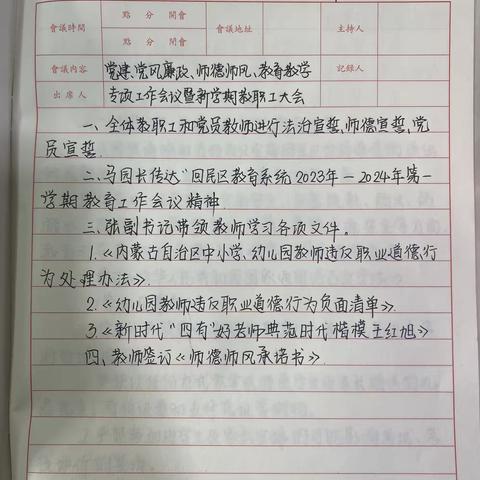 會議時間 點 分 開會 會議地址 主持人
點 分 閉會
會議内容 党建、党风廉政、师德师风、教育教学 記録人
出席人 专项工作会议暨新学期教职工大会
一、全体教职工和党员教师进行法治宣誓,师德宣誓,党
员宣誓.
二、马园长传达"回民区教育系统2023年—2024年第一
学期教育工作会议精神.
三、张副书记带领教师学习各项文件。
1.《内蒙古自治区中小学、幼儿园教师违反职业道德行
为处理办法》.
2.《幼儿园教师违反职业道德行为负面清单》.
3.《新时代"四有"好老师典范时代楷模王红旭》
四、教师签订《师德师风承诺书》.